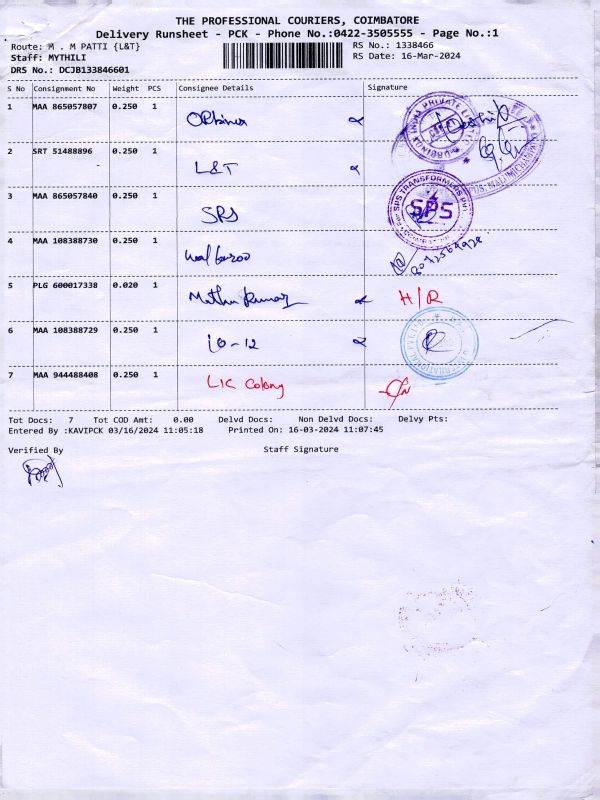 THE PROFESSIONAL COURIERS, COIMBATORE
Delivery Runsheet - PCK - Phone No.:0422-3505555 - Page No.:1
Route: M . M PATTI {L&T}
RS No.: 1338466
Staff: MYTHILI
RS Date: 16-Mar-2024
DRS No.: DCJB133846601
S No Consignment No Weight PCS Consignee Details Signature
1 MAA 865057807 0.250 1
2 SRT 51488896 0.250 1 L&T
3 MAA 865057840 0.250 1 SRS
SPS TRANSFORMERS PVT
SPS
4 MAA 108388730 0.250 1
5 PLG 600017338 0.020 1 Muthu Kumar H/R
6 MAA 108388729 0.250 1 10-12
7 MAA 944488408 0.250 1 LIC Colony
Tot Docs: 7 Tot COD Amt: 0.00 Delvd Docs: Non Delvd Docs: Delvy Pts:
Entered By :KAVIPCK 03/16/2024 11:05:18 Printed On: 16-03-2024 11:07:45
Verified By Staff Signature